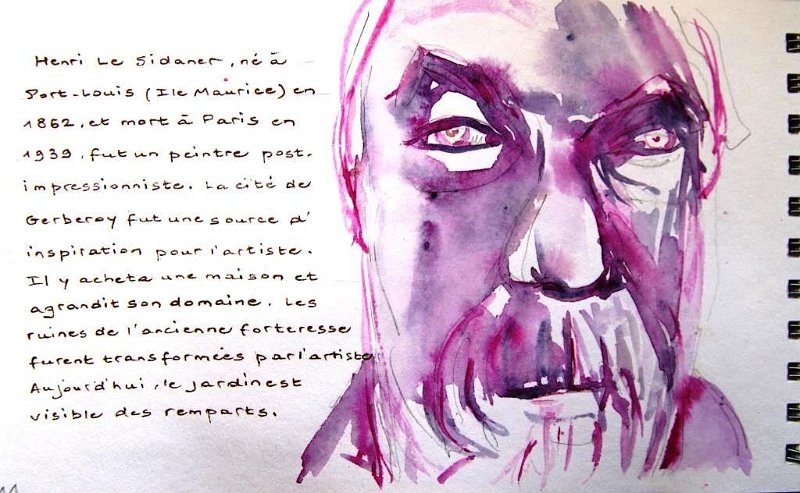 Henri Le Sidaner, né à
Port-Louis (Ile Maurice) en
1862, et mort à Paris en
1939, fut un peintre post-
impressionniste. La cité de
Gerberoy fut une source d'
inspiration pour l'artiste.
Il y acheta une maison et
agrandit son domaine. Les
ruines de l'ancienne forteresse
furent transformées par l'artiste
Aujourd'hui, le jardin est
visible des remparts.